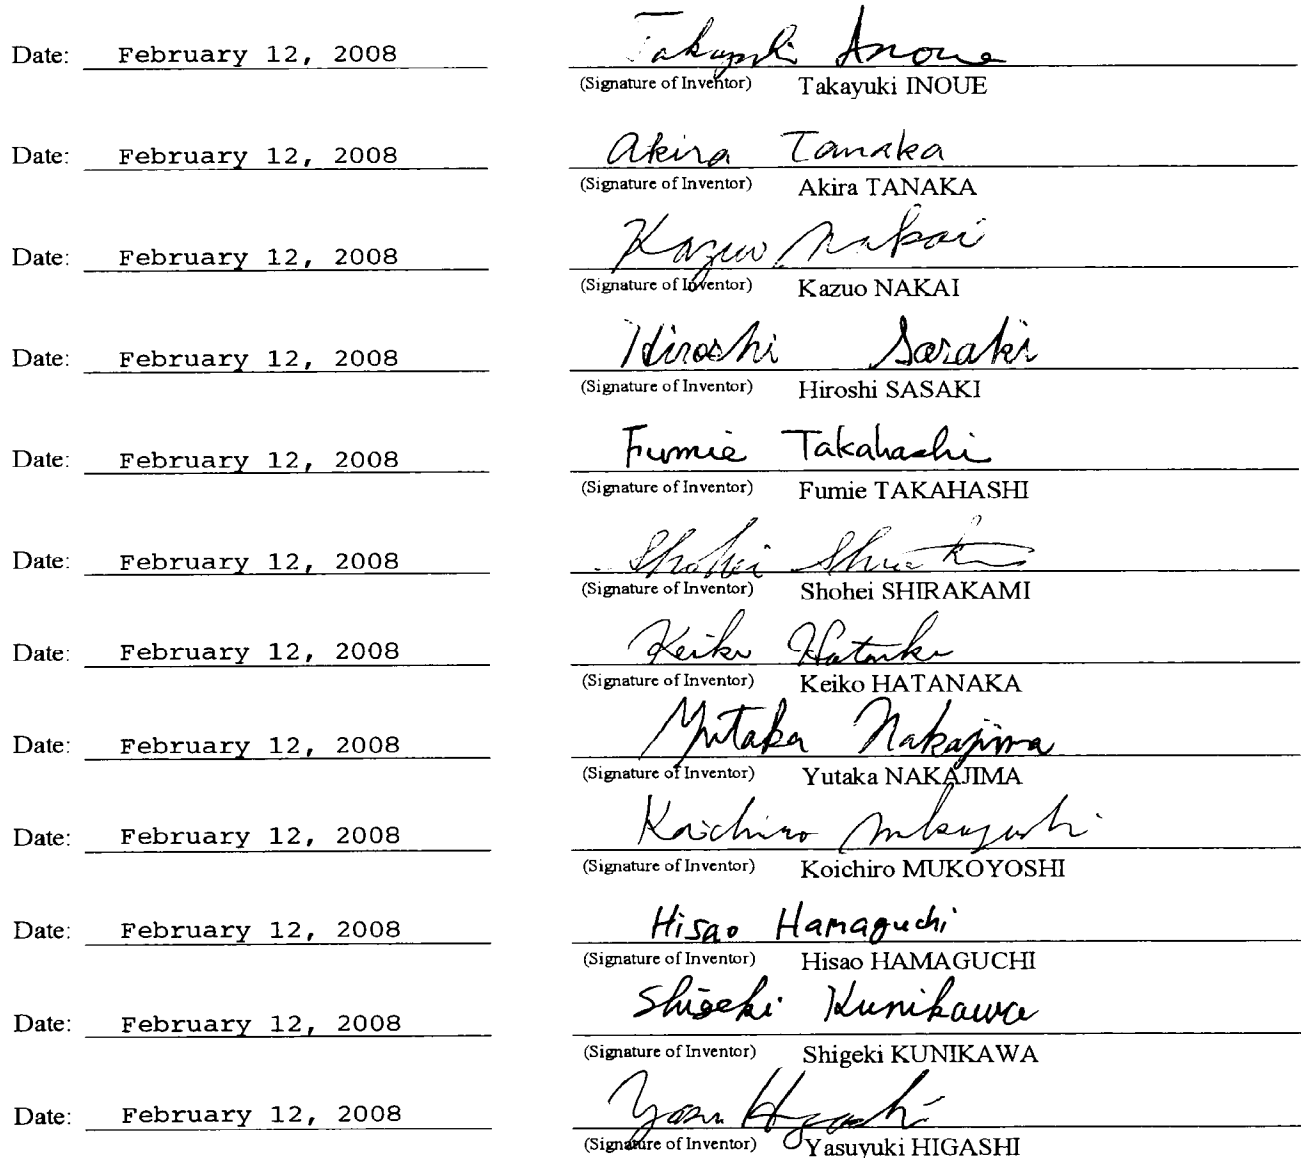 Date: February 12, 2008 Takayuki Inoue
(Signature of Inventor) Takayuki INOUE
Date: February 12, 2008 Akira Tanaka
(Signature of Inventor) Akira TANAKA
Date: February 12, 2008 Kazuo Nakai
(Signature of Inventor) Kazuo NAKAI
Date: February 12, 2008 Hiroshi Sasaki
(Signature of Inventor) Hiroshi SASAKI
Date: February 12, 2008 Fumie Takahashi
(Signature of Inventor) Fumie TAKAHASHI
Date: February 12, 2008 Shohei
(Signature of Inventor) Shohei SHIRAKAMI
Date: February 12, 2008 Keiko
(Signature of Inventor) Keiko HATANAKA
Date: February 12, 2008 Yutaka Nakajima
(Signature of Inventor) Yutaka NAKAJIMA
Date: February 12, 2008 Koichiro
(Signature of Inventor) Koichiro MUKOYOSHI
Date: February 12, 2008 Hisao Hamaguchi
(Signature of Inventor) Hisao HAMAGUCHI
Date: February 12, 2008 Shigeki Kunikawa
(Signature of Inventor) Shigeki KUNIKAWA
Date: February 12, 2008
(Signature of Inventor) Yasuyuki HIGASHI